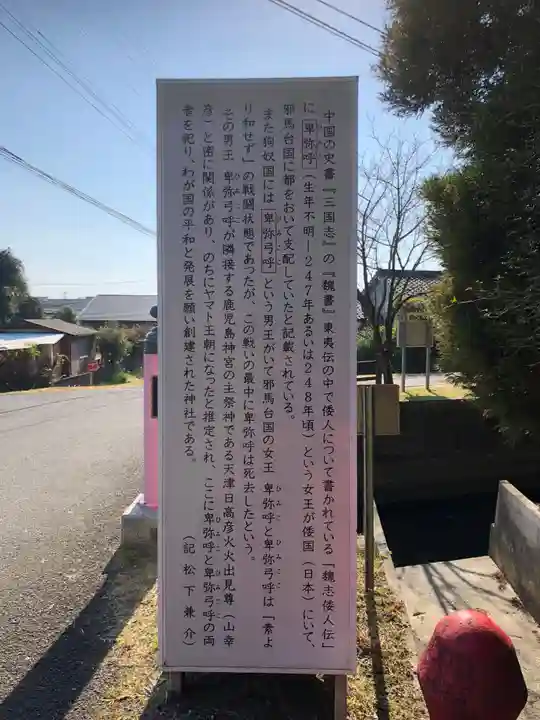 中国の史書『三国志』の『魏書』東夷伝の中で倭人について書かれている「魏志倭人伝」
に 卑弥呼（生年不明ー247年あるいは248年頃）という女王が倭国（日本）にいて、
邪馬台国に都をおいて支配していたと記載されている。
また狗奴国には 卑弥弓呼 という男王がいて邪馬台国の女王 卑弥呼と卑弥弓呼は「素よ
り和せず」の戦闘状態であったが、この戦いの最中に卑弥呼は死去したという。
その男王 卑弥弓呼が隣接する鹿児島神宮の主祭神である天津日高彦火火出見尊（山幸
彦）と密に関係があり、のちにヤマト王朝になったと推定され、ここに卑弥呼と卑弥弓呼の両
者を祀り、わが国の平和と発展を願い創建された神社である。
（記 松下兼介）